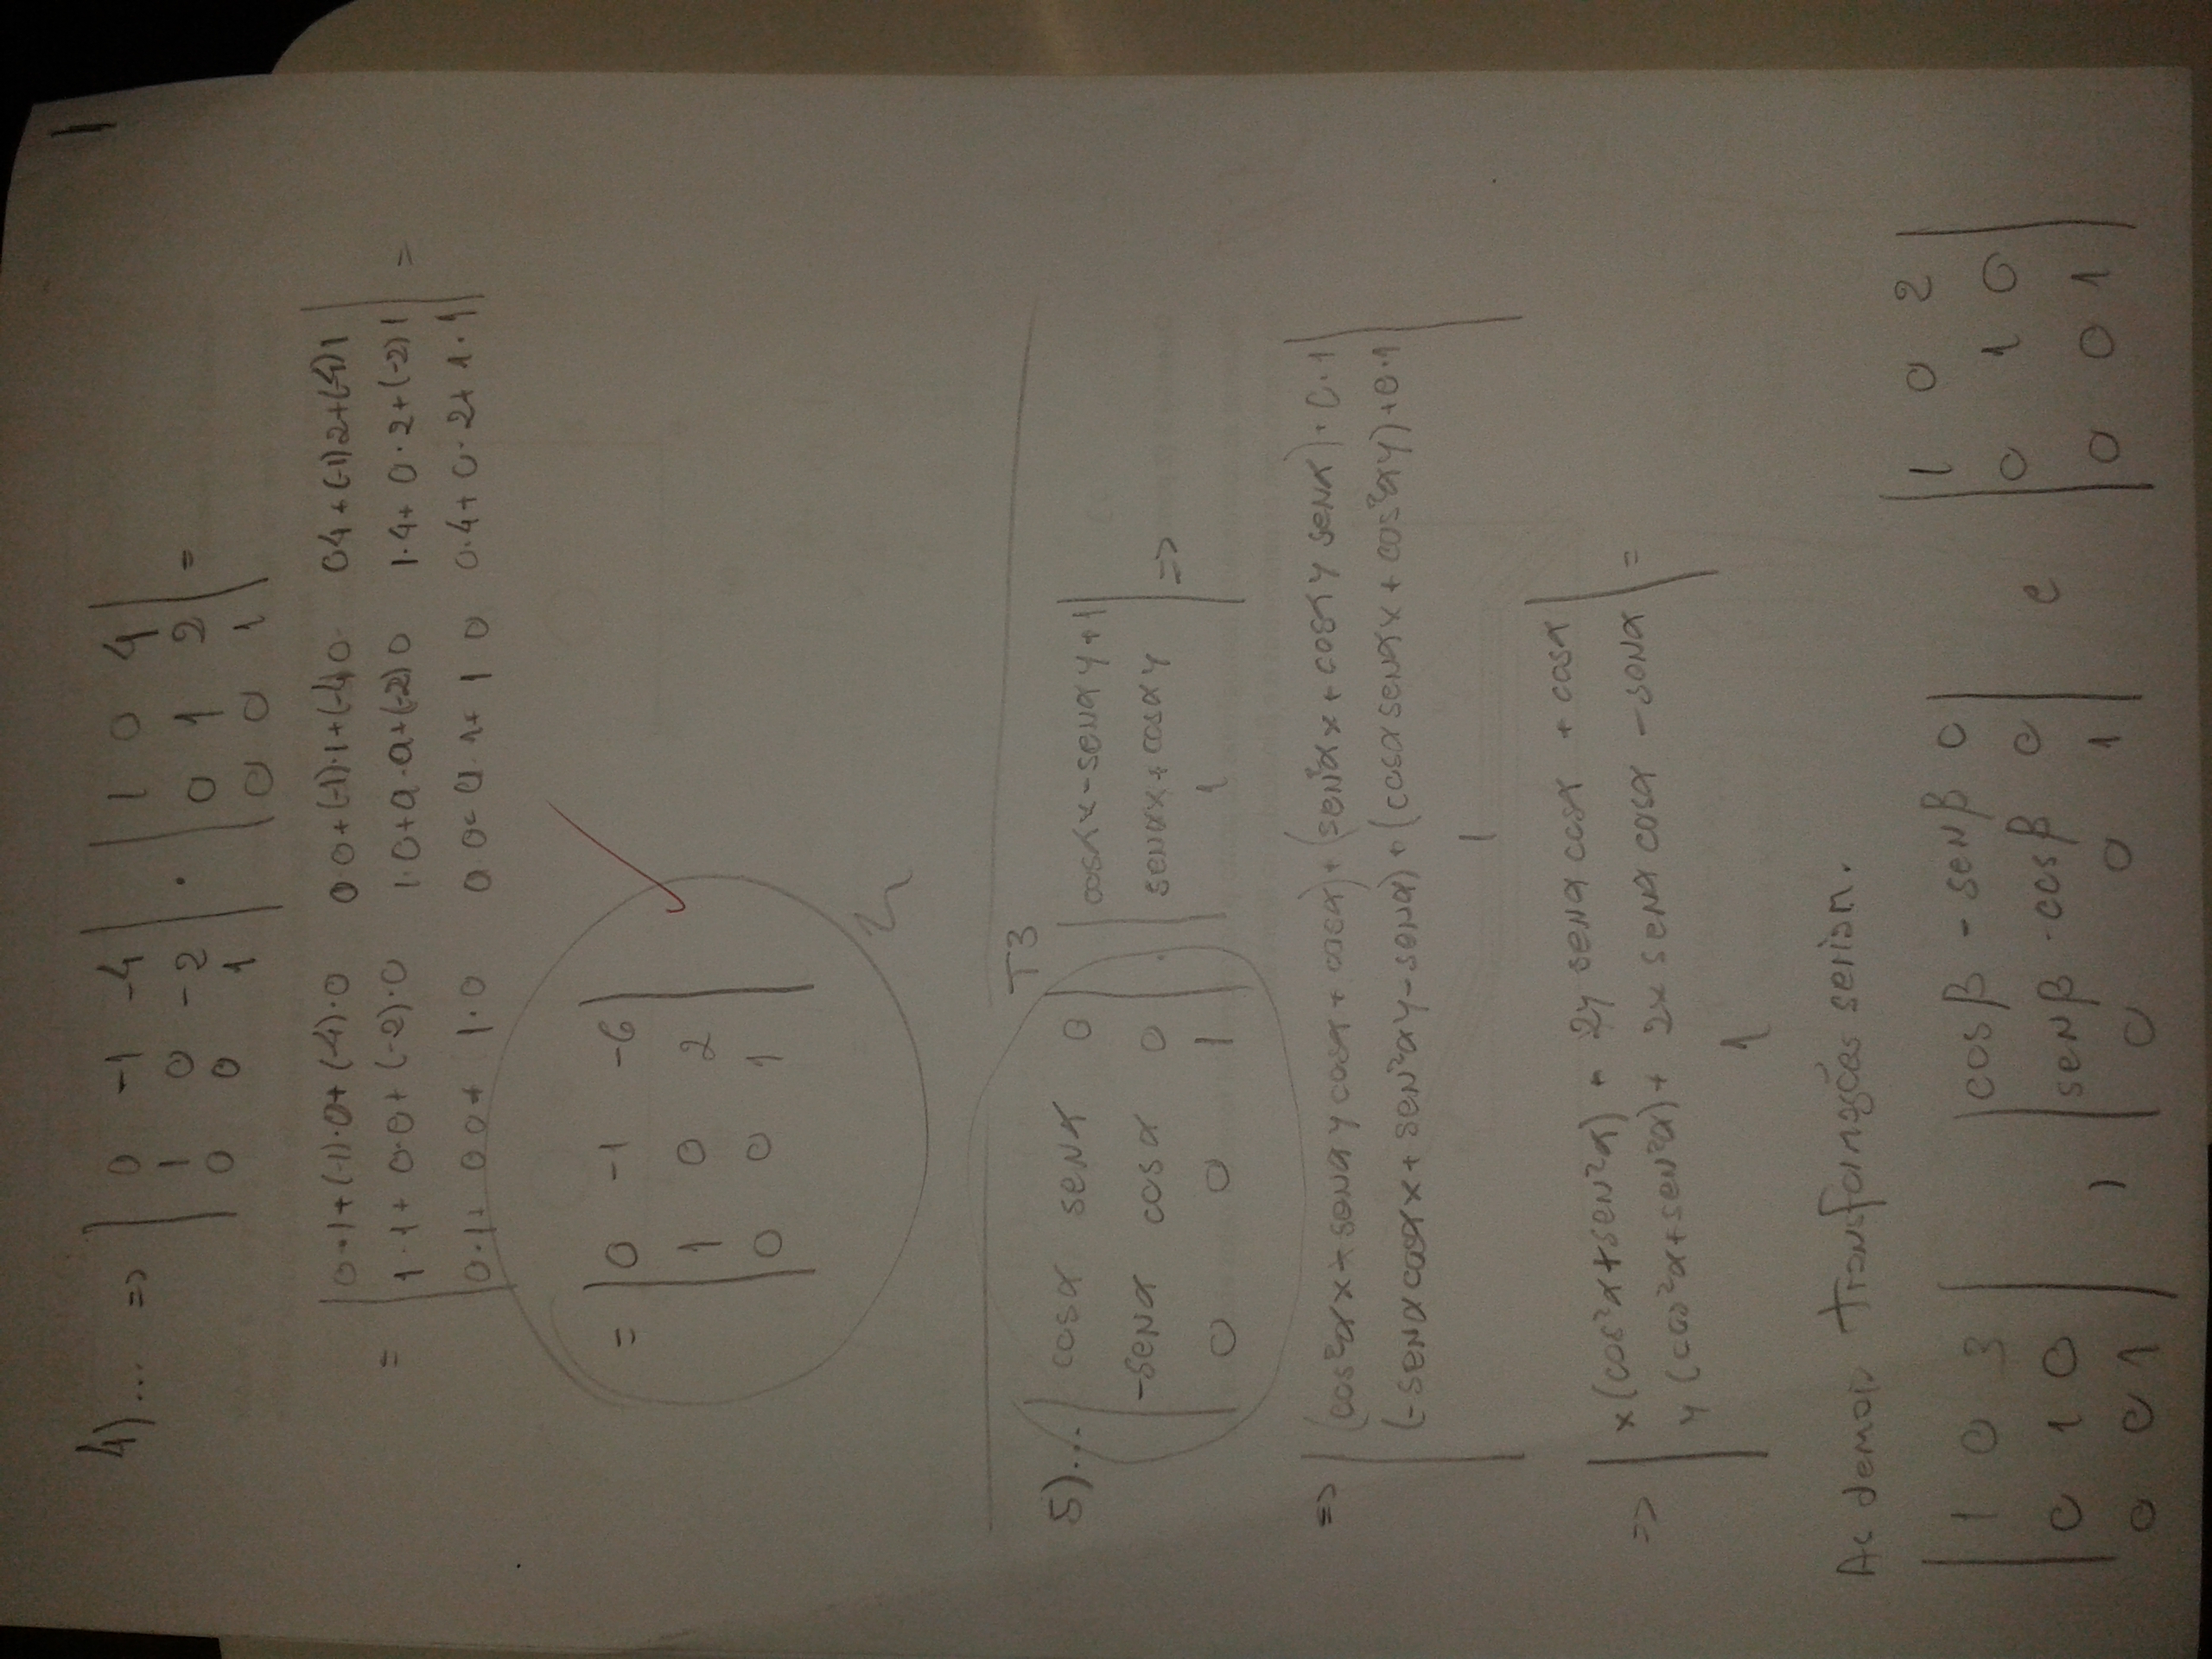 4)... => | 0 -1 -4 | . | 1 0 4 | =
| 1 0 -2 | | 0 1 2 |
| 0 0 1 | | 0 0 1 |
= | 0·1+(-1)·0+(-4)·0 0 0+(-1)·1+(-4)0 0 4+(-1)2+(-4)1 |
| 1·1+ 0·0+(-2)·0 1·0+0·0+(-2)0 1·4+ 0·2+(-2)1 | =
| 0·1+ 0 0+ 1·0 0 0+ 0·1+ 1 0 0·4+0·2+1·1 |
= | 0 -1 -6 |
| 1 0 2 |
| 0 0 1 |
T3
5)... | cosα senα 0 | . | cosαx-senαy+1 |
| -senα cosα 0 | | senαx+cosαy | =>
| 0 0 1 | | 1 |
=> | (cos²αx-senαy cosα+cosα)+(sen²αx+cosαy senα)+0.1 |
| (-senαcosαx+sen²αy-senα)+(cosαsenαx+cos²αy)+0.1 |
1
=> | x(cos²α+sen²α) - 2y senα cosα + cosα |
| y(cos²α+sen²α)+ 2x senα cosα -senα | =
1
As demais transformações seriam.
| 1 0 3 | , | cosβ -senβ 0 | e | 1 0 2 |
| 0 1 0 | | senβ cosβ 0 | | 0 1 0 |
| 0 0 1 | | 0 0 1 | | 0 0 1 |